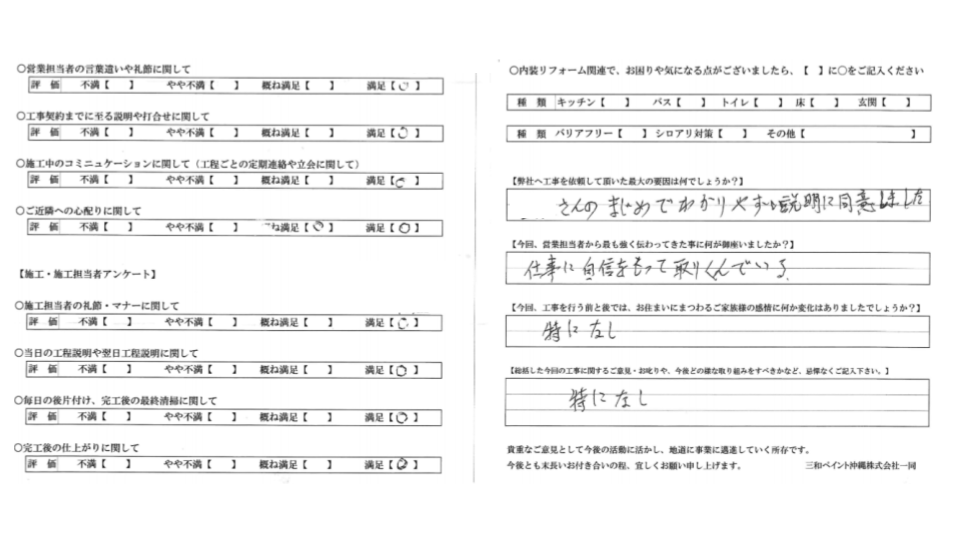 ○営業担当者の言葉遣いや礼節に関して
評 価 不満【 】 やや不満【 】 概ね満足【 】 満足【○】
○工事契約までに至る説明や打合せに関して
評 価 不満【 】 やや不満【 】 概ね満足【 】 満足【○】
○施工中のコミニュケーションに関して（工程ごとの定期連絡や立会に関して）
評 価 不満【 】 やや不満【 】 概ね満足【 】 満足【○】
○ご近隣への心配りに関して
評 価 不満【 】 やや不満【 】 概ね満足【○】 満足【○】
【施工・施工担当者アンケート】
○施工担当者の礼節・マナーに関して
評 価 不満【 】 やや不満【 】 概ね満足【 】 満足【○】
○当日の工程説明や翌日工程説明に関して
評 価 不満【 】 やや不満【 】 概ね満足【 】 満足【○】
○毎日の後片付け、完工後の最終清掃に関して
評 価 不満【 】 やや不満【 】 概ね満足【 】 満足【○】
○完工後の仕上がりに関して
評 価 不満【 】 やや不満【 】 概ね満足【 】 満足【○】
○内装リフォーム関連で、お困りや気になる点がございましたら、【 】に○をご記入ください
種 類 キッチン【 】 バス【 】 トイレ【 】 床【 】 玄関【 】
種 類 バリアフリー【 】 シロアリ対策【 】 その他【 】
【弊社へ工事を依頼して頂いた最大の要因は何でしょうか？】
さんのまじめでわかりやすい説明に同意しました
【今回、営業担当者から最も強く伝わってきた事に何が御座いましたか？】
仕事に自信をもって取りくんでいる
【今回、工事を行う前と後では、お住まいにまつわるご家族様の感情に何か変化はありましたでしょうか？】
特になし
【総括した今回の工事に関するご意見・お叱りや、今後どの様な取り組みをすべきかなど、忌憚なくご記入下さい。】
特になし
貴重なご意見として今後の活動に活かし、地道に事業に邁進していく所存です。
今後とも末長いお付き合いの程、宜しくお願い申し上げます。 三和ペイント沖縄株式会社一同